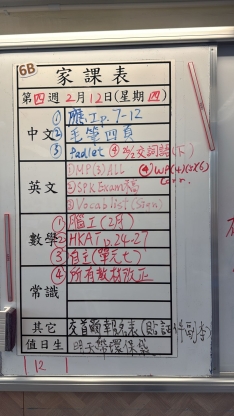 6B
家課表
第四週2月12日(星期四)
中文
① 應工p.7-12
② 毛筆四頁
③ Padlet ④ 交詞語(下)
英文
① MP(3)ALL
④ WP(4)
② SPK Exam
③ Vocab list (Sign)
數學
① 腦工(2月)
② HKAT p.24-27
③ 自主(單元七)
④ 所有教材改正
常識
其它
值日生
明天帶環保袋
1 12 1